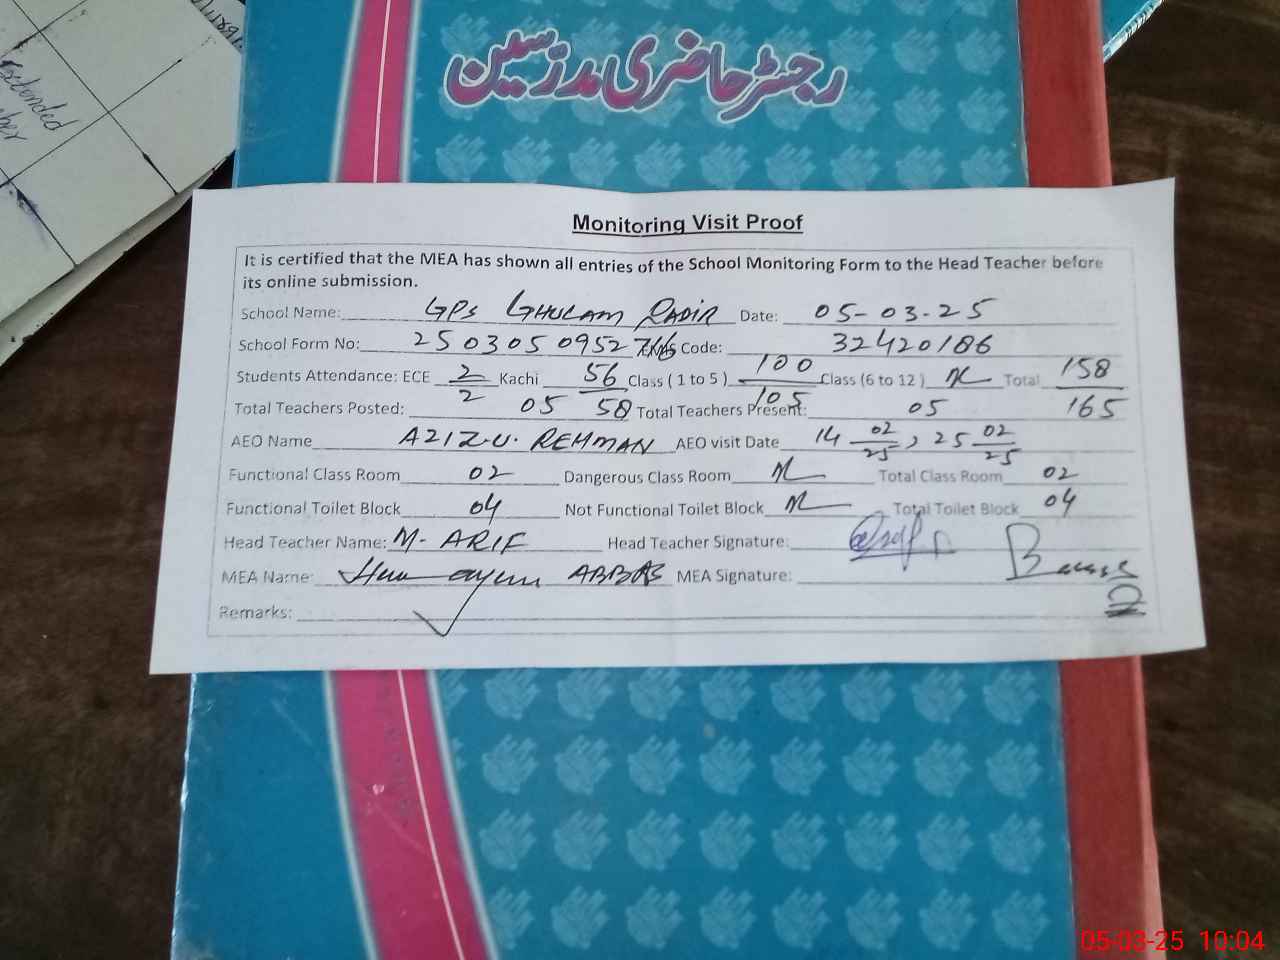 Extended
رجسٹر حاضری مدرسین
Monitoring Visit Proof
It is certified that the MEA has shown all entries of the School Monitoring Form to the Head Teacher before
its online submission.
School Name: GPS GHULAM QADIR Date: 05-03-25
School Form No: 250305095276 Code: 32420186
Students Attendance: ECE 2/2 Kachi 56/58 Class ( 1 to 5 ) 100/105 Class (6 to 12 ) Total 158/165
Total Teachers Posted: 05 Total Teachers Present: 05
AEO Name AZIZ.U. REHMAN AEO visit Date 14 02/25, 25 02/25
Functional Class Room 02 Dangerous Class Room Total Class Room 02
Functional Toilet Block 04 Not Functional Toilet Block Total Toilet Block 04
Head Teacher Name: M. ARIF Head Teacher Signature:
MEA Name: ABBAS MEA Signature:
Remarks:
05-03-25 10:04